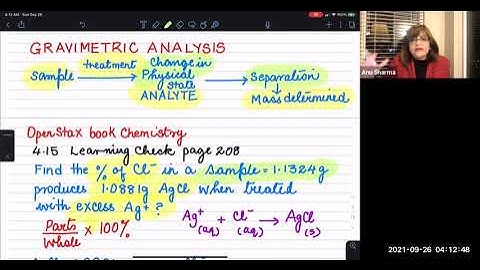 4:12 AM Sun Sep 26
GRAVIMETRIC ANALYSIS
sample treatment Change in Physical state ANALYTE Separation
Mass determined
OpenStax book Chemistry
4.15 Learning Check page 208
Find the % of Cl⁻ in a sample = 1.1324g
produces 1.0881g AgCl when treated
with excess Ag⁺ ?
Parts/Whole x 100%
Ag⁺(aq) + Cl⁻(aq) → AgCl(s)
Anu Sharma
2021-09-26 04:12:48